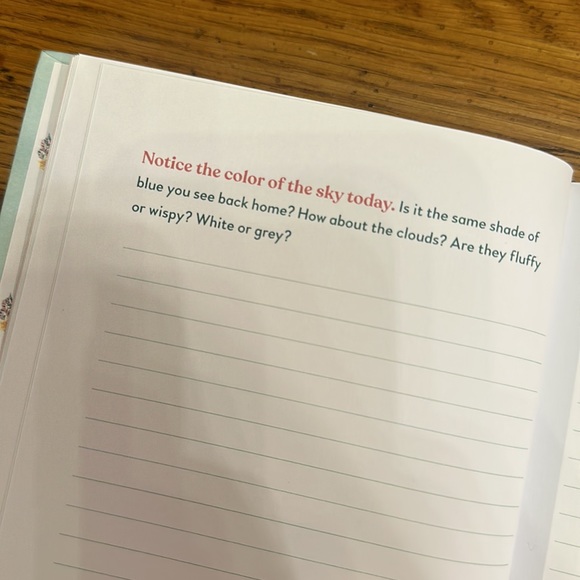 Notice the color of the sky today. Is it the same shade of
blue you see back home? How about the clouds? Are they fluffy
or wispy? White or grey?